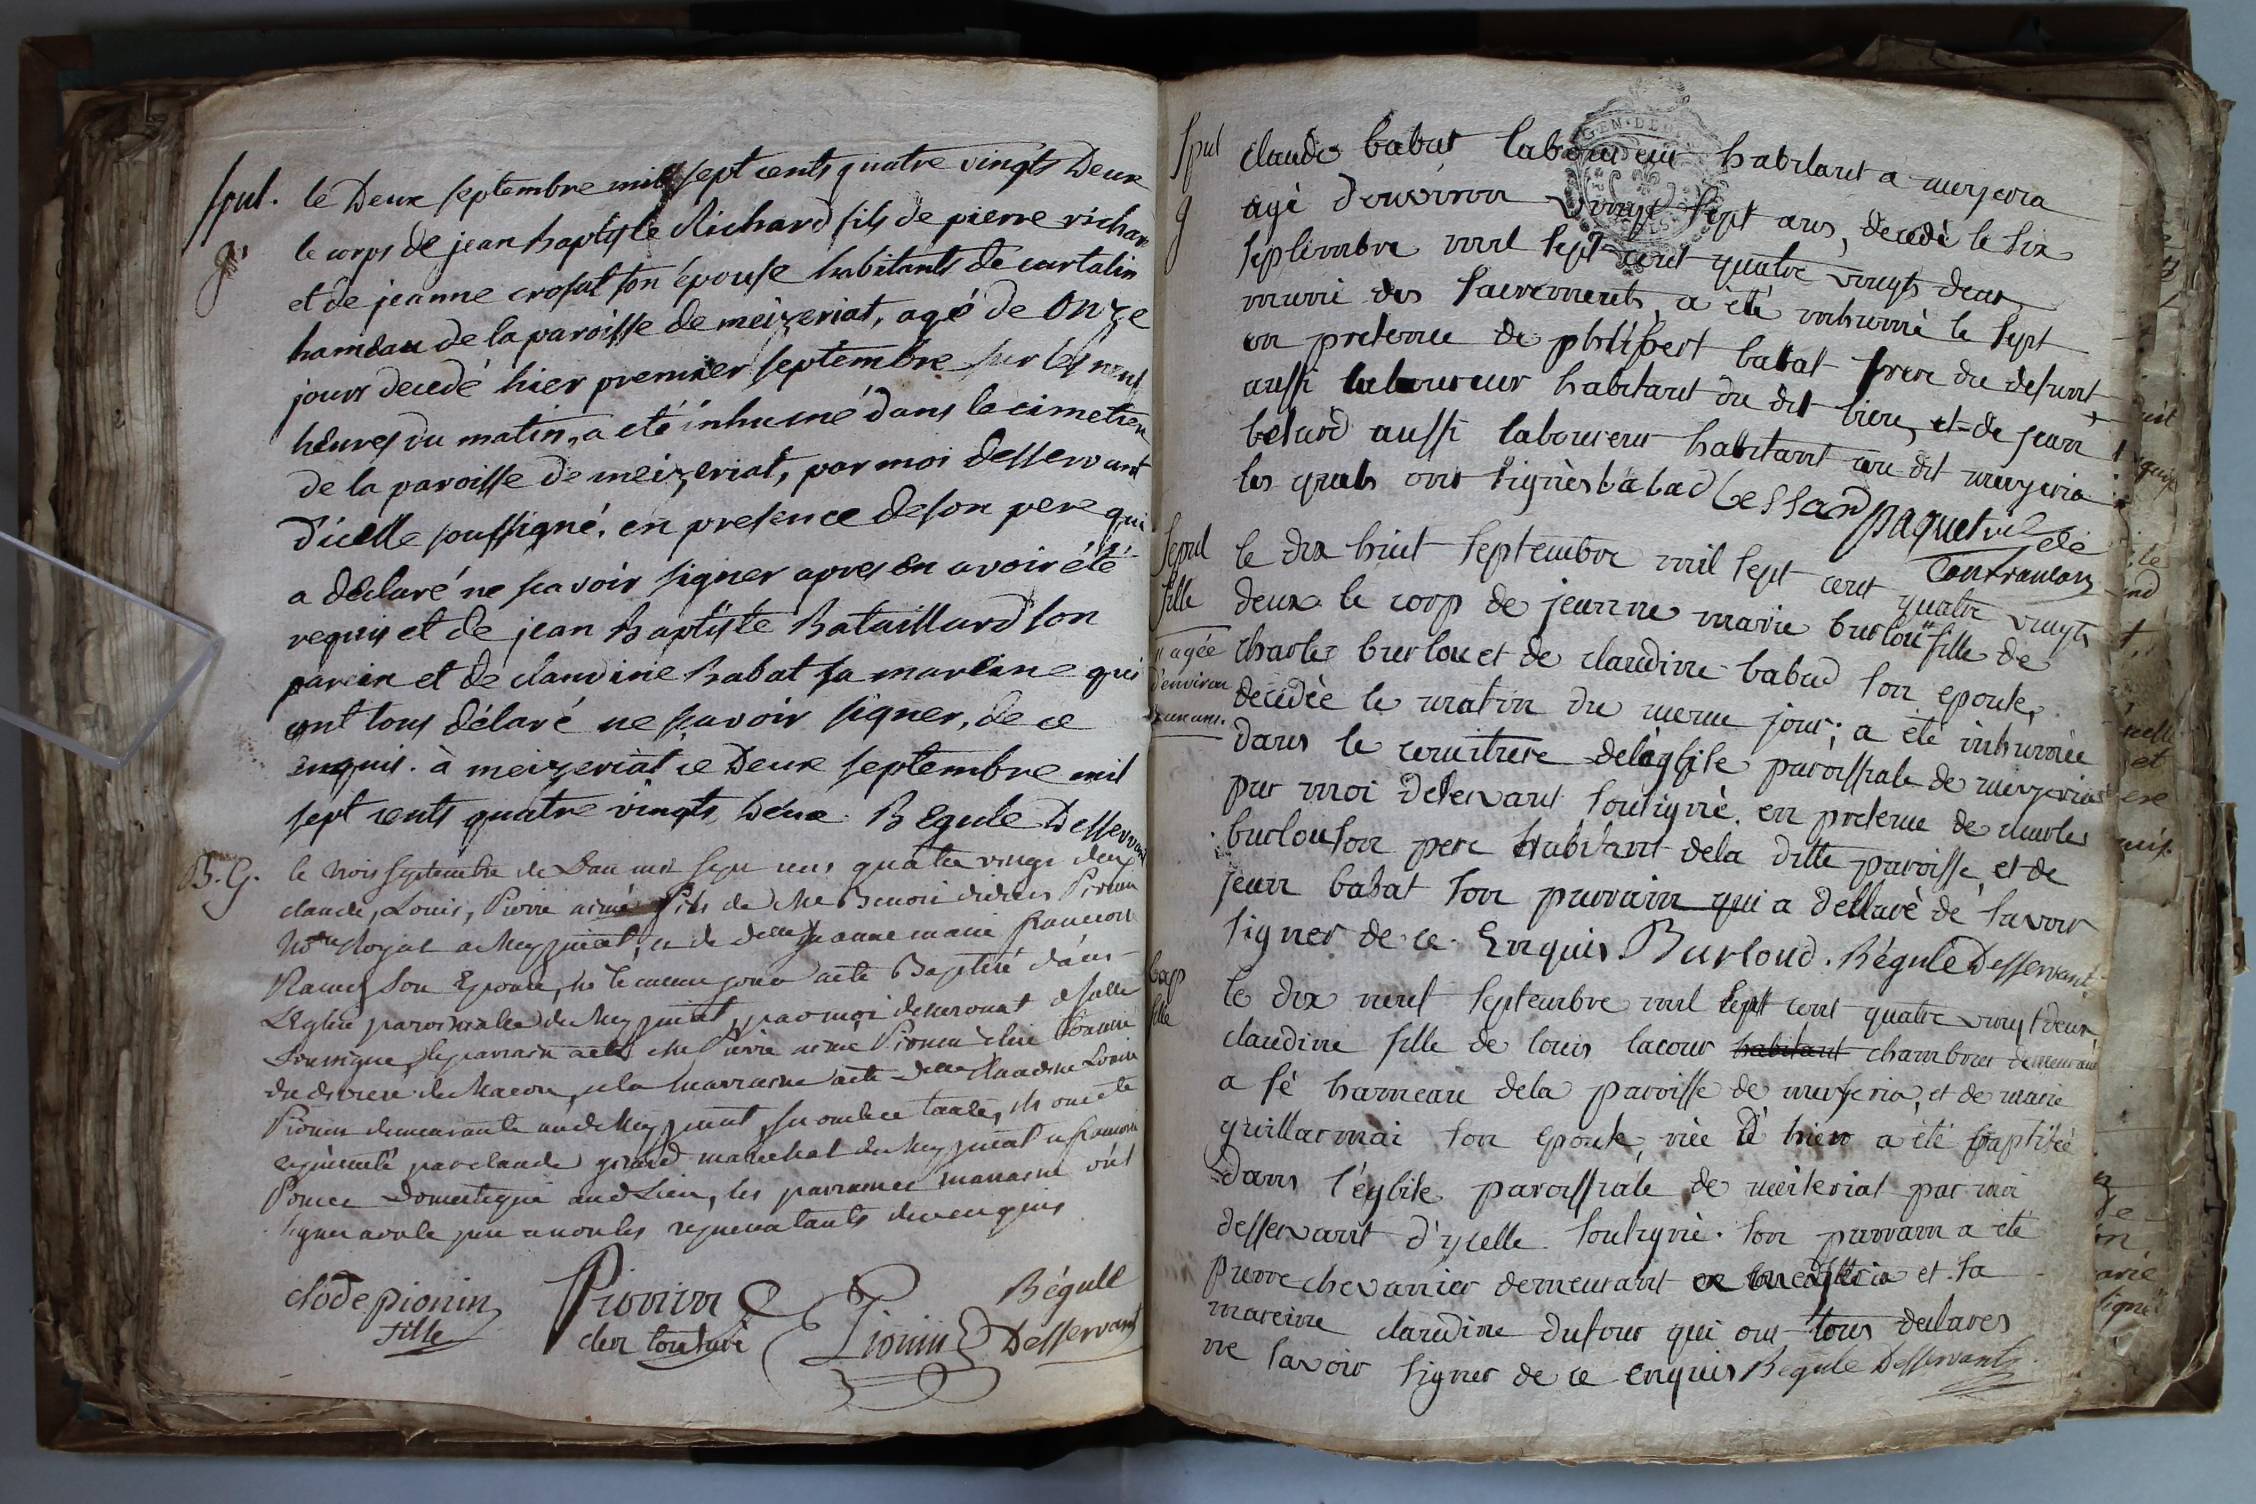 Spul. le Deux septembre mil sept cents quatre vingts Deux
g. le corps de jean baptiste Richard fils de pierre richard
et de jeanne crosat son épouse habitants de curtalin
hameau de la paroisse de meizeriat, agé de Onze
jours decedé hier premier septembre sur les neuf
heures du matin, a été inhumé dans le cimetiere
de la paroisse de meizeriat, par moi desservant
d'icelle soussigné. en presence de son pere qui
a déclaré ne scavoir signer apres en avoir été
requis et de jean baptiste Bataillard son
parein et de claudine babat sa mareine qui
ont tous déclaré ne scavoir signer, de ce
enquis. à meizeriat ce Deux septembre mil
sept cents quatre vingts Deux. Bégule Desservant
B.G. le trois septembre de L'an mil sept cens quatre vingt deux
claude, Louis, Pierre aimé fils de Me Benoit Pionin
Nore Royal a Mezzeriat, et de delle jeanne marie francon
son Epouse, né le meme jour a eté Baptisé dans
L'Eglise paroissialle de Mezzeriat, par moi desservant d'icelle
soussigné, le parrain a eté Me Pierre aimé Pionin clerc tonsuré
du diocese de Macon, et la marraine a eté delle claudine Louise
Pionin demeurante aud Mezzeriat, ses oncle et tante, ils ont eté
représenté par claude girard marechal de Mezzeriat et
Domestique aud Lieu, les parrain et marraine ont
signé avec le pere et non les representants de ce enquis
clode pionin Pionin Pionin Bégule
fille clerc tonsuré Desservant
Spul claude babat laboureur habitant a meyseria
g agé d'environ vingt sept ans, decedé le six
septembre mil sept cent quatre vingts deux
muni des sacrements a été inhumé le sept
en presence de philibert babat frere du defunt
aussi laboureur habitant du dit lieu, et de jean
belard aussi laboureur habitant au dit meyseria
les quels ont signés babad Bessard paquet
Confrancon
Sepul le dix huit septembre mil sept cent quatre vingts
fille deux le corp de jeanne marie burlou" fille de
" agée charles burlou et de claudine babad son epouse,
d'environ decedée le matin du meme jour; a été inhumée
un ans. dans le cemitiere de l'eglise paroissiale de meyzeria
par moi deservant soussigné. en presence de charles
burlou son pere habitant de la ditte paroisse, et de
jean babat son parrain qui a dellaré de savoir
signer de ce. Enquis. Burloud. Bégule Desservant.
bap le dix neuf septembre mil sept cent quatre vingt deux
fille claudine fille de louis lacour habitant chambrier demeurant
a fé hameau de la paroisse de meyseria, et de marie
guillarmai son epouse, née d'hier a été baptisée
Dans l'églite paroissiale de meiteriat par moi
desservant d'ycelle soussigné. son parrain a été
pierre chevanier demeurant et sa
mareine claudine dufour qui ont tous declarés
ne savoir signer de ce enquis Bégule Desservant